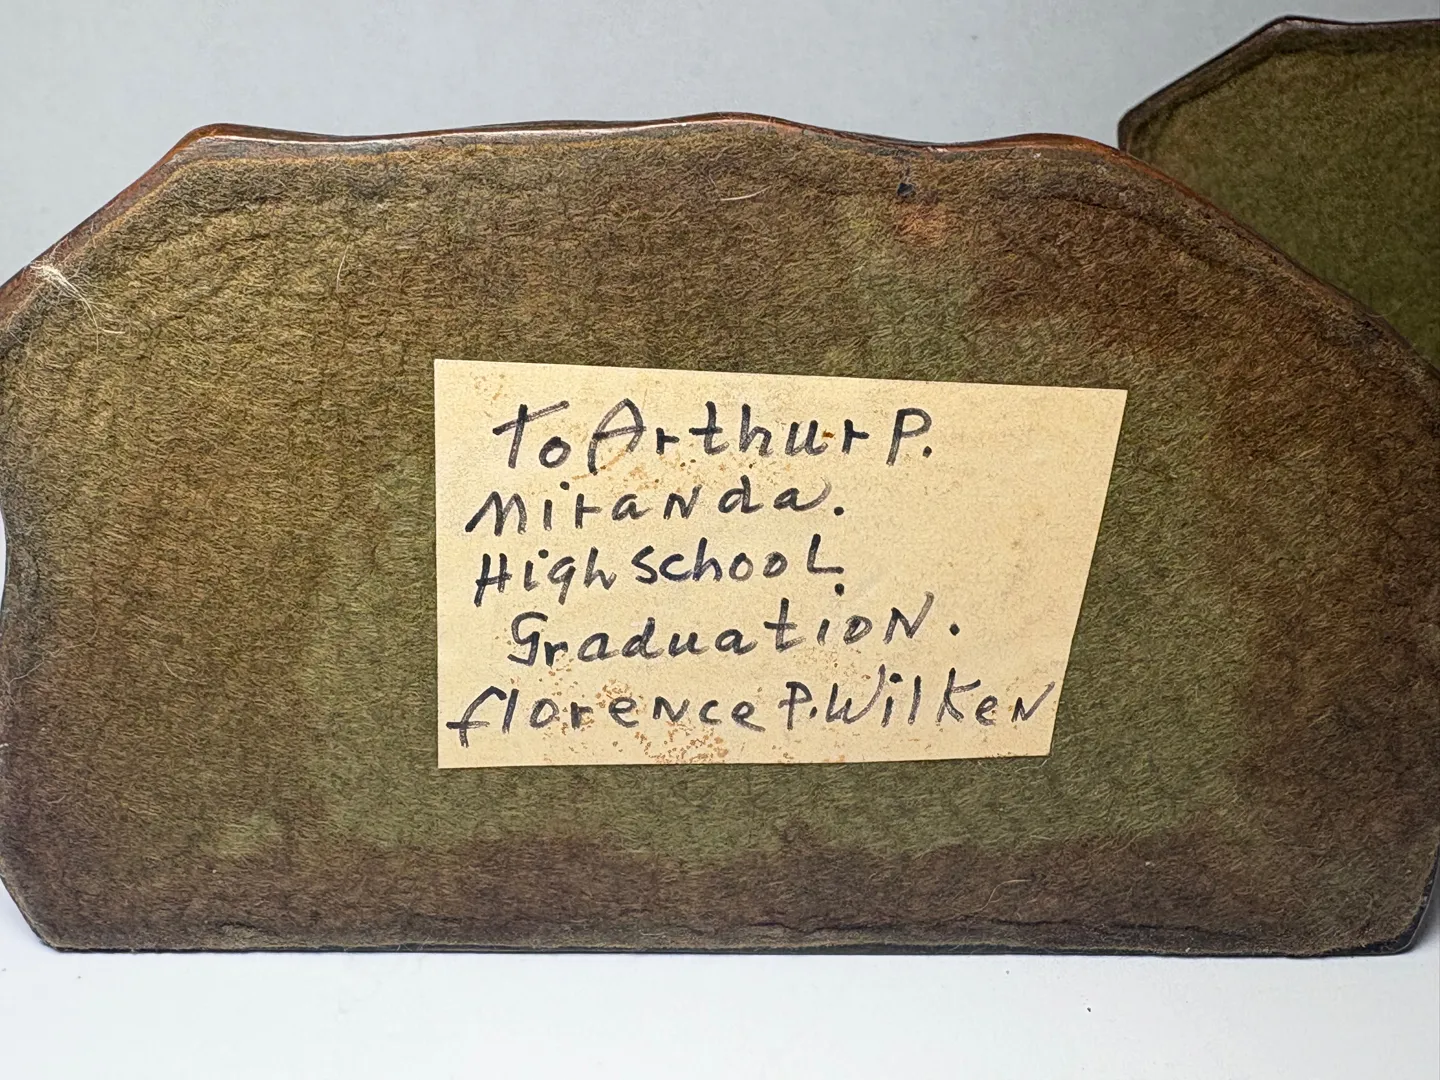 To Arthur P.
Miranda.
High school.
Graduation.
florence P. Wilken